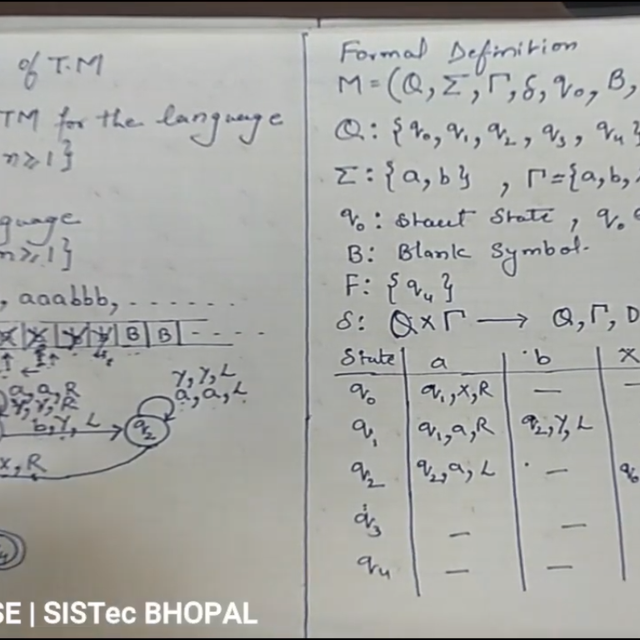 of T.M
TM for the language
n≥1}
guage
n≥1}
, aaabbb, - - - - - -
B B - - - -
a, a, R
y, y, R
b, y, L
y, y, L
a, a, L
q2
x, R
Formal Definition
M = (Q, Σ, Γ, δ, q0, B,
Q : {q0, q1, q2, q3, q4}
Σ : {a, b} , Γ = {a, b,
q0 : Start State , q0
B : Blank Symbol.
F : {q4}
δ : Q × Γ → Q, Γ, D
State a b x
q0 q1, x, R — —
q1 q1, a, R q2, y, L
q2 q2, a, L — q0
q3 — —
q4 — —
SE | SISTec BHOPAL